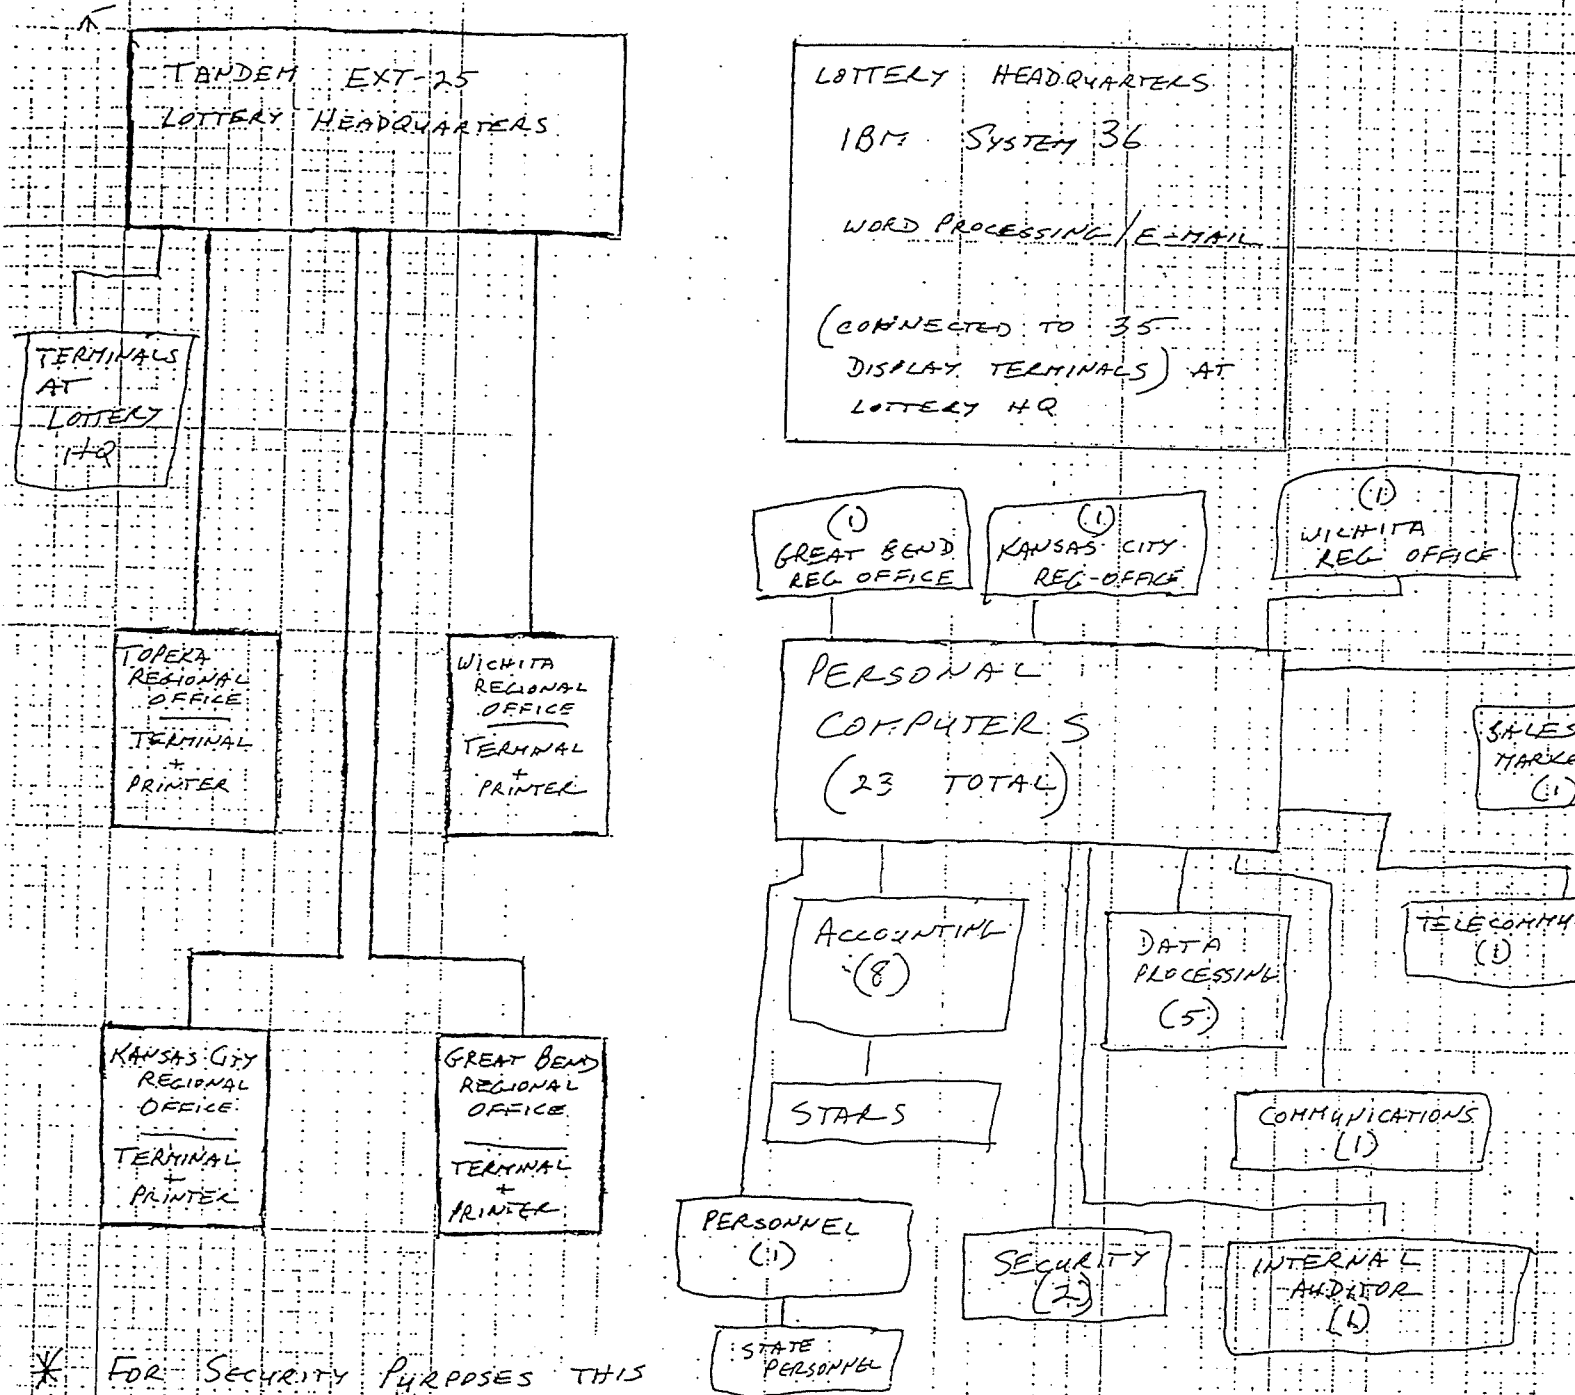 TANDEM EXT-25
LOTTERY HEADQUARTERS
TERMINALS
AT
LOTTERY
HQ
TOPEKA
REGIONAL
OFFICE
TERMINAL
+
PRINTER
WICHITA
REGIONAL
OFFICE
TERMINAL
+
PRINTER
KANSAS CITY
REGIONAL
OFFICE
TERMINAL
+
PRINTER
GREAT BEND
REGIONAL
OFFICE
TERMINAL
+
PRINTER
* FOR SECURITY PURPOSES THIS
LOTTERY HEADQUARTERS
IBM SYSTEM 36
WORD PROCESSING/E-MAIL
(CONNECTED TO 35
DISPLAY TERMINALS) AT
LOTTERY HQ
(1)
GREAT BEND
REG OFFICE
(1)
KANSAS CITY
REG-OFFICE
(1)
WICHITA
REG OFFICE
PERSONAL
COMPUTERS
(23 TOTAL)
SALES
MARKE
(1)
ACCOUNTING
(8)
DATA
PROCESSING
(5)
TELECOMMU
(1)
STARS
COMMUNICATIONS
(1)
PERSONNEL
(1)
SECURITY
(2)
INTERNAL
AUDITOR
(1)
STATE
PERSONNEL